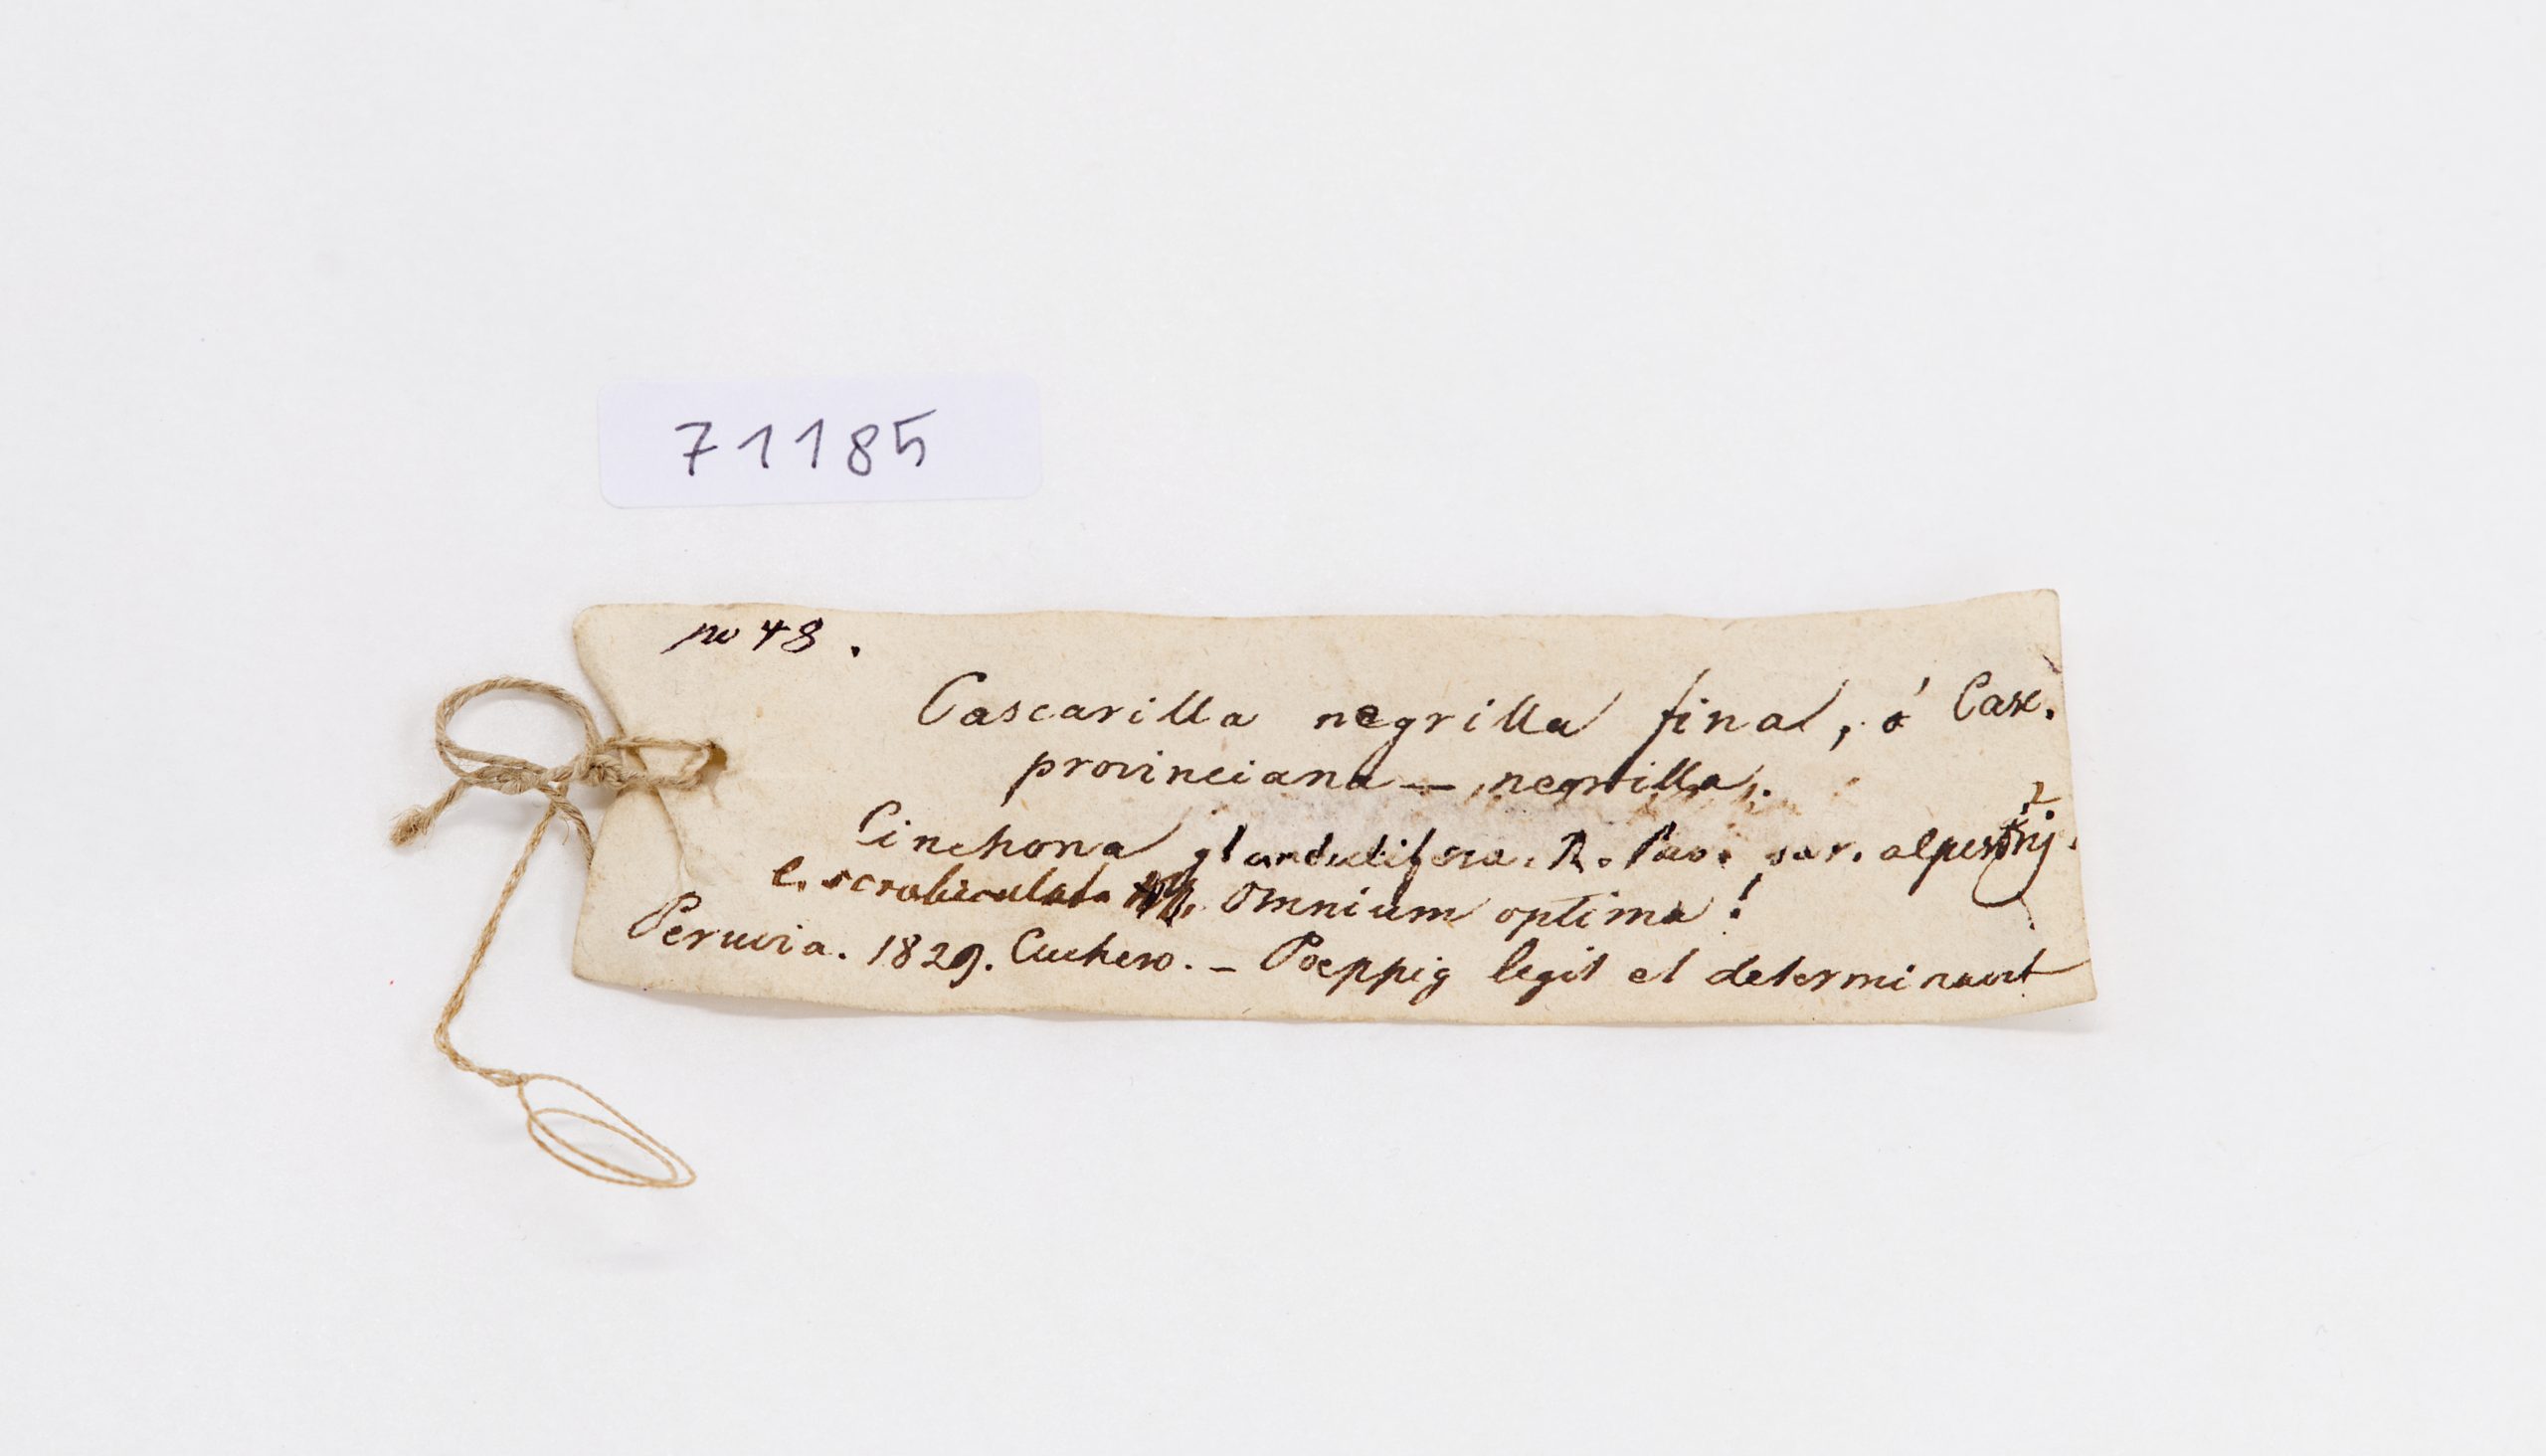 71185
no 48.
Cascarilla negrilla fina, ó Casc.
provinciana — negrilla.
Cinchona glandulifera. R. Pav. var. alpestris.
?
C. scrobiculata omnium optima!
Peruvia. 1829. Cuchero. – Poeppig legit et determinavit